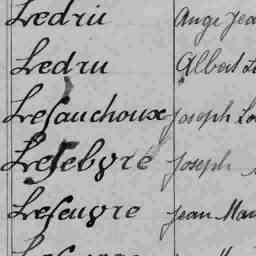 Ledru Ange Jea
Ledru Albert
Lefauchoux Joseph Lo
Lefebvre Joseph
Lefeuvre Jean Mar